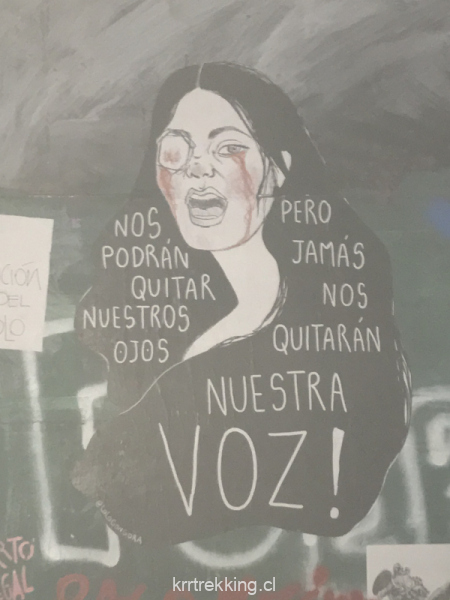 NOS
PODRÁN
QUITAR
NUESTROS
OJOS
PERO
JAMÁS
NOS
QUITARÁN
NUESTRA
VOZ!
CIÓN
DEL
krrtrekking.cl